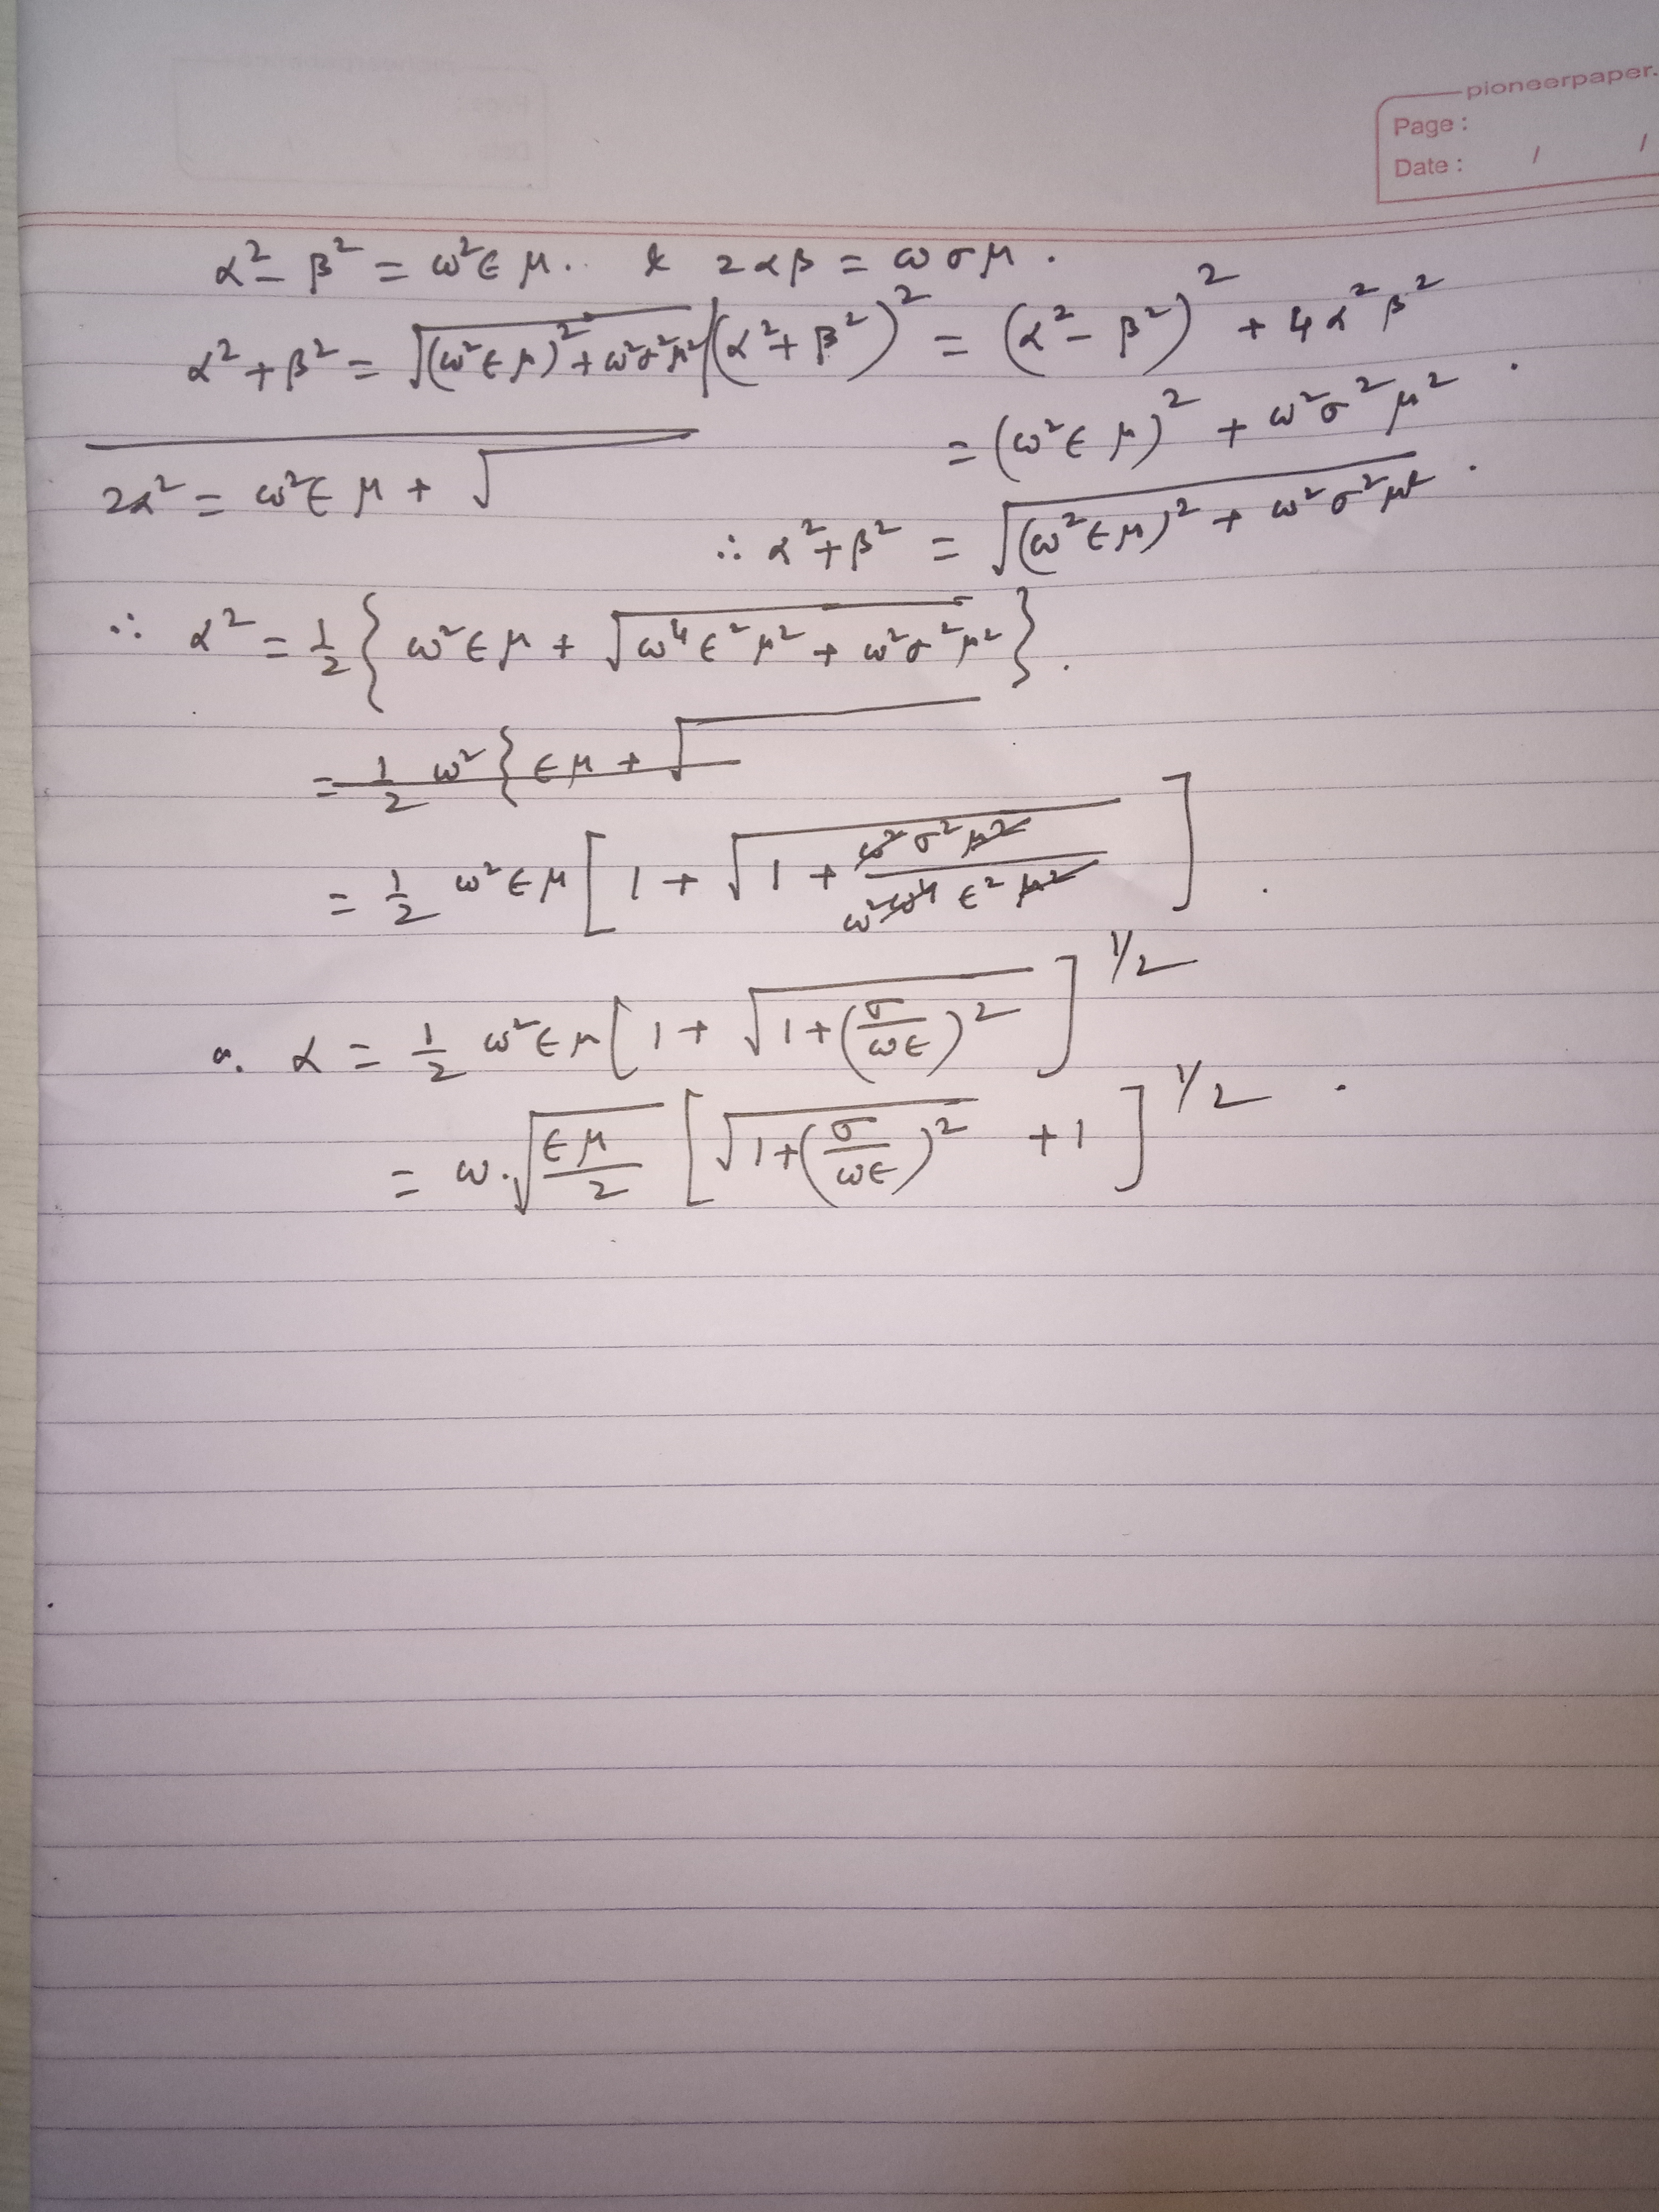 pioneerpaper.
Page :
Date : / /
α² - β² = ω²∈μ. & 2αβ = ωσμ.
α² + β² = √((ω²∈μ)² + ω²σ²μ²) | (α² + β²)² = (α² - β²)² + 4α²β²
= (ω²∈μ)² + ω²σ²μ².
2α² = ω²∈μ + √
∴ α² + β² = √((ω²∈μ)² + ω²σ²μ²).
∴ α² = 1/2 { ω²∈μ + √(ω⁴∈²μ² + ω²σ²μ²) }.
= 1/2 ω² { ∈μ + √
= 1/2 ω²∈μ [ 1 + √(1 + ω²σ²μ² / ω² ω⁴ ∈² μ²) ].
α = 1/2 ω²∈μ [ 1 + √(1 + (σ/ω∈)²) ]^1/2
= ω.√(∈μ/2) [ √(1 + (σ/ω∈)²) + 1 ]^1/2.